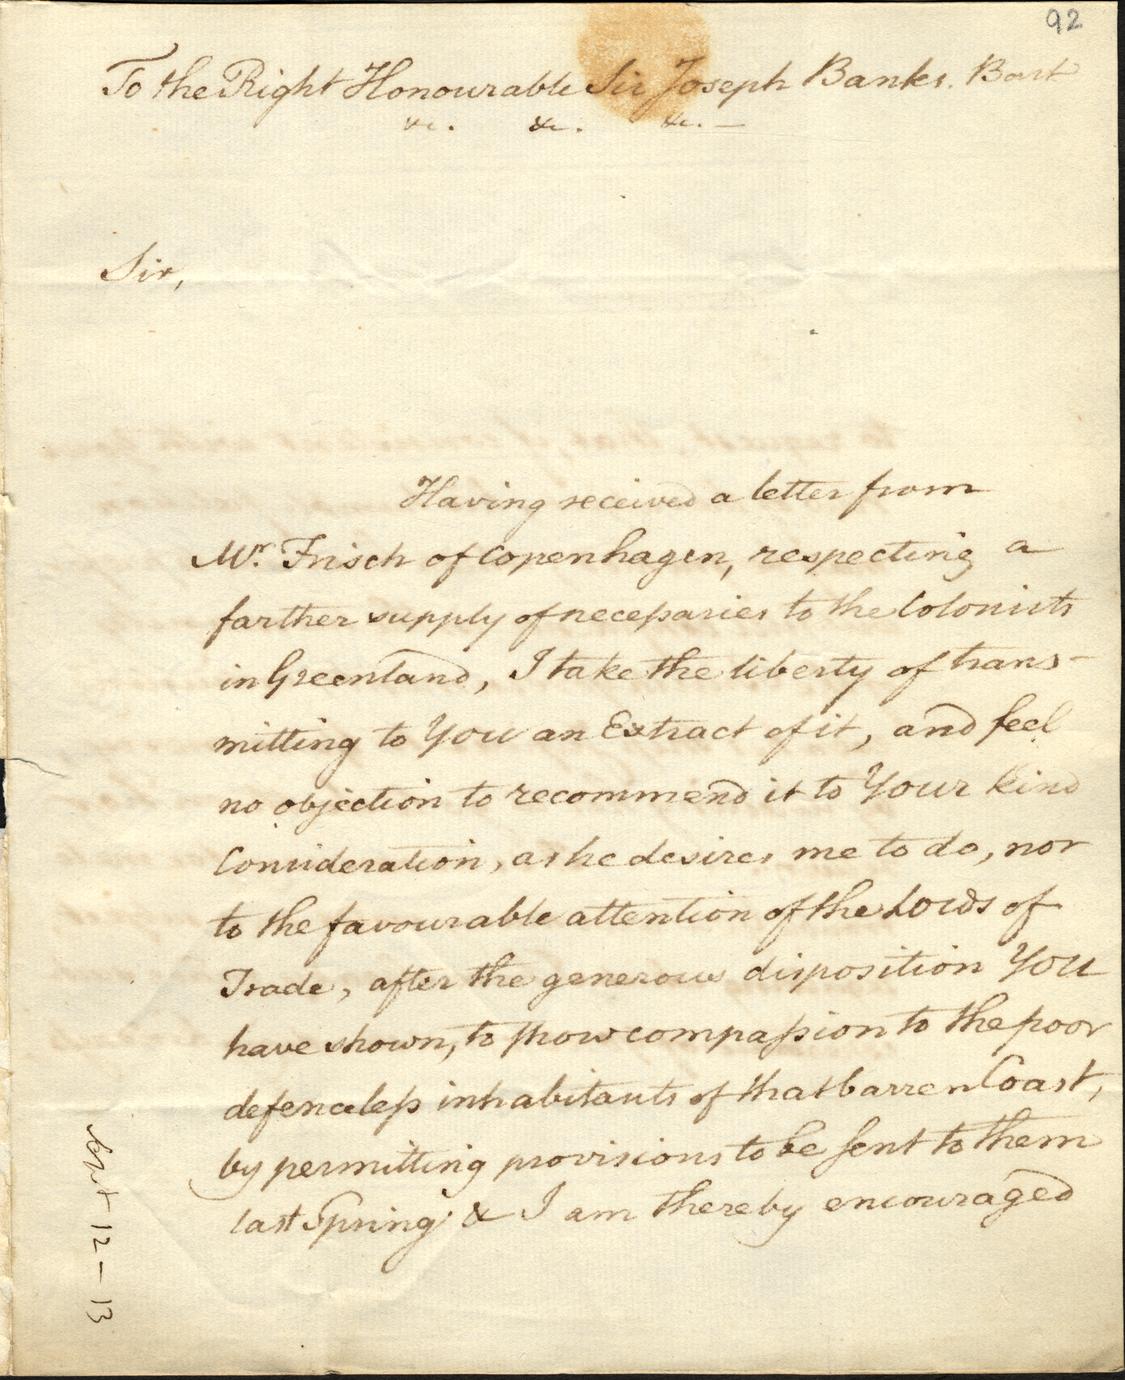 92
To the Right Honourable Sir Joseph Banks. Bart
&c. &c. &c. —
Sir,
Having received a letter from
Mr. Frisch of Copenhagen, respecting a
farther supply of necessaries to the Colonists
in Greenland, I take the liberty of trans-
mitting to You an Extract of it, and feel
no objection to recommend it to Your kind
Consideration, as he desires me to do, nor
to the favourable attention of the Lords of
Trade, after the generous disposition You
have shown, to show compassion to the poor
defenceless inhabitants of that barren Coast,
by permitting provisions to be sent to them
last Spring; & I am thereby encouraged
12 — 13